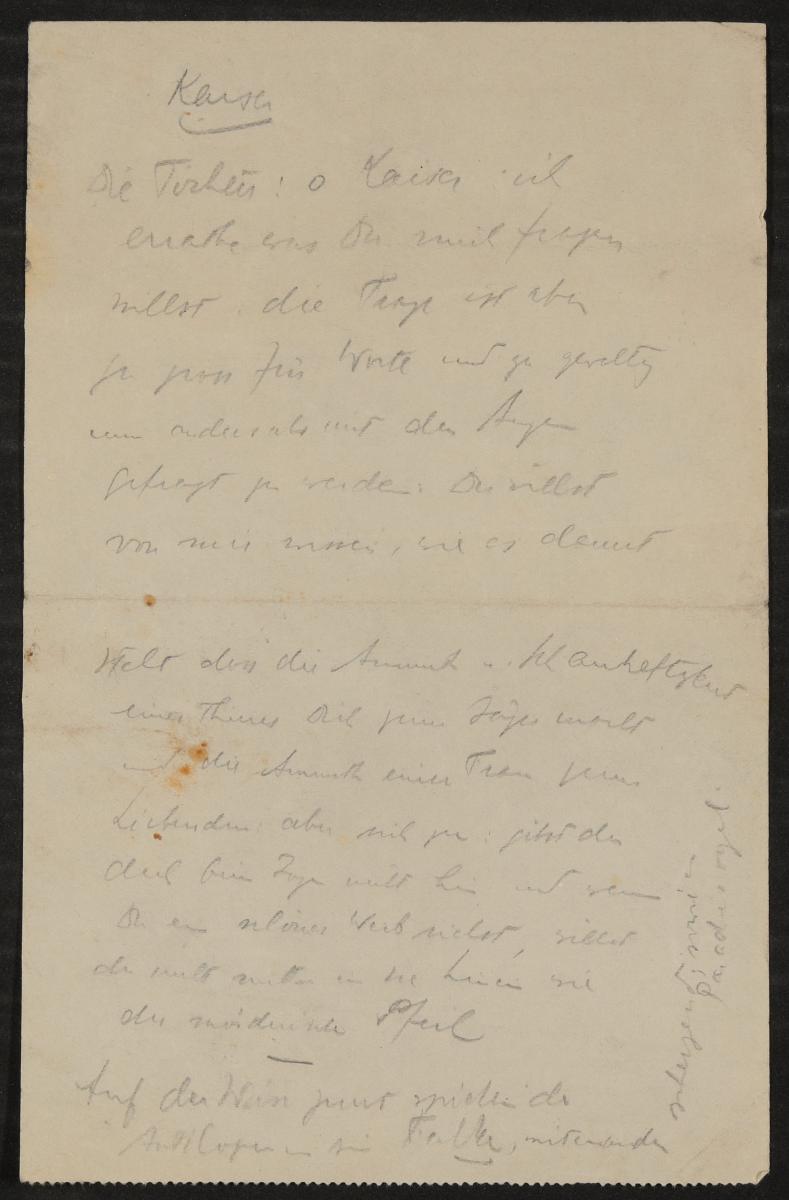 Kaiser
Die Tochter: o Kaiser ich
errathe was Du mich fragen
willst. die Frage ist aber
zu gross für Worte und zu gewaltig
um anders als mit den Augen
gefragt zu werden: Du willst
von mir wissen, wie es damit
steht dass die Anmuth u.
eines Thieres Dich zum Jäger macht
und die Anmuth einer Frau zum
Liebenden: aber sieh zu: gibst du
dich beim Jagen nicht hin und wenn
Du ein schönes Weib siehst, willst
du nicht mitten in sie hinein wie
der mörderische Pfeil
Auf der Wiese zuerst spielende
Antilopen ein Falke, miteinander
scherzend:
Paradiesvogel.